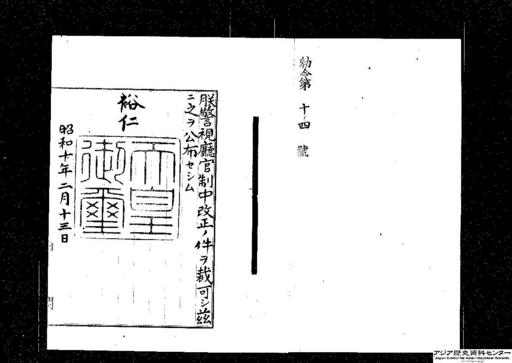 勅令第十四號
朕警視廳官制中改正ノ件ヲ裁可シ茲
ニ之ヲ公布セシム
裕仁
天皇
御璽
昭和十年二月十三日
アジア歴史資料センター
Japan Center for Asian Historical Records